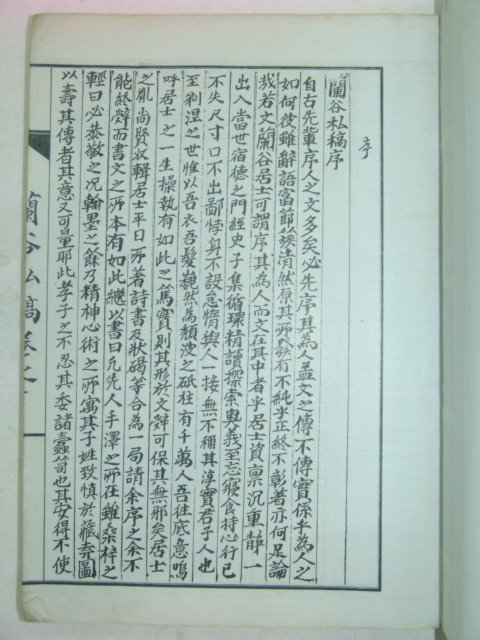 序
蘭谷私稿序
自古先輩序人之文多矣必先序其為人盖文之傳不傳實係乎為人之
如何彼雖辭語富節簇清然原其所發有不純乎正終不彰著亦何足論
哉若文蘭谷居士可謂序其為人而文在其中者乎居士資禀沉重靜一
出入當世宿德之門經史子集循環精讀探索奧義至忘寢食持心行己
不失尺寸口不出鄙悖身不設怠惰與人一接無不稱其淳實君子人也
至剥涅之世惟以吾衣吾髮巍然為頽波之砥柱有千萬人吾往底意嗚
呼居士之一生操執有如此之篤實則其形於文辭可保其無邪矣居士
之胤尚賢收輯居士平日所著詩書及狀碣等合為一局請余序之余不
能終辭而書文之所本有如此繼以書曰凡先人手澤之所在雖桑梓之
輕曰必恭敬之况翰墨之餘乃精神心術之所寓其子姓致慎於藏弆圖
以壽其傳者其意又可量耶此孝子之不忍其委諸蠹笥也其安得不使
蘭谷私稿卷之